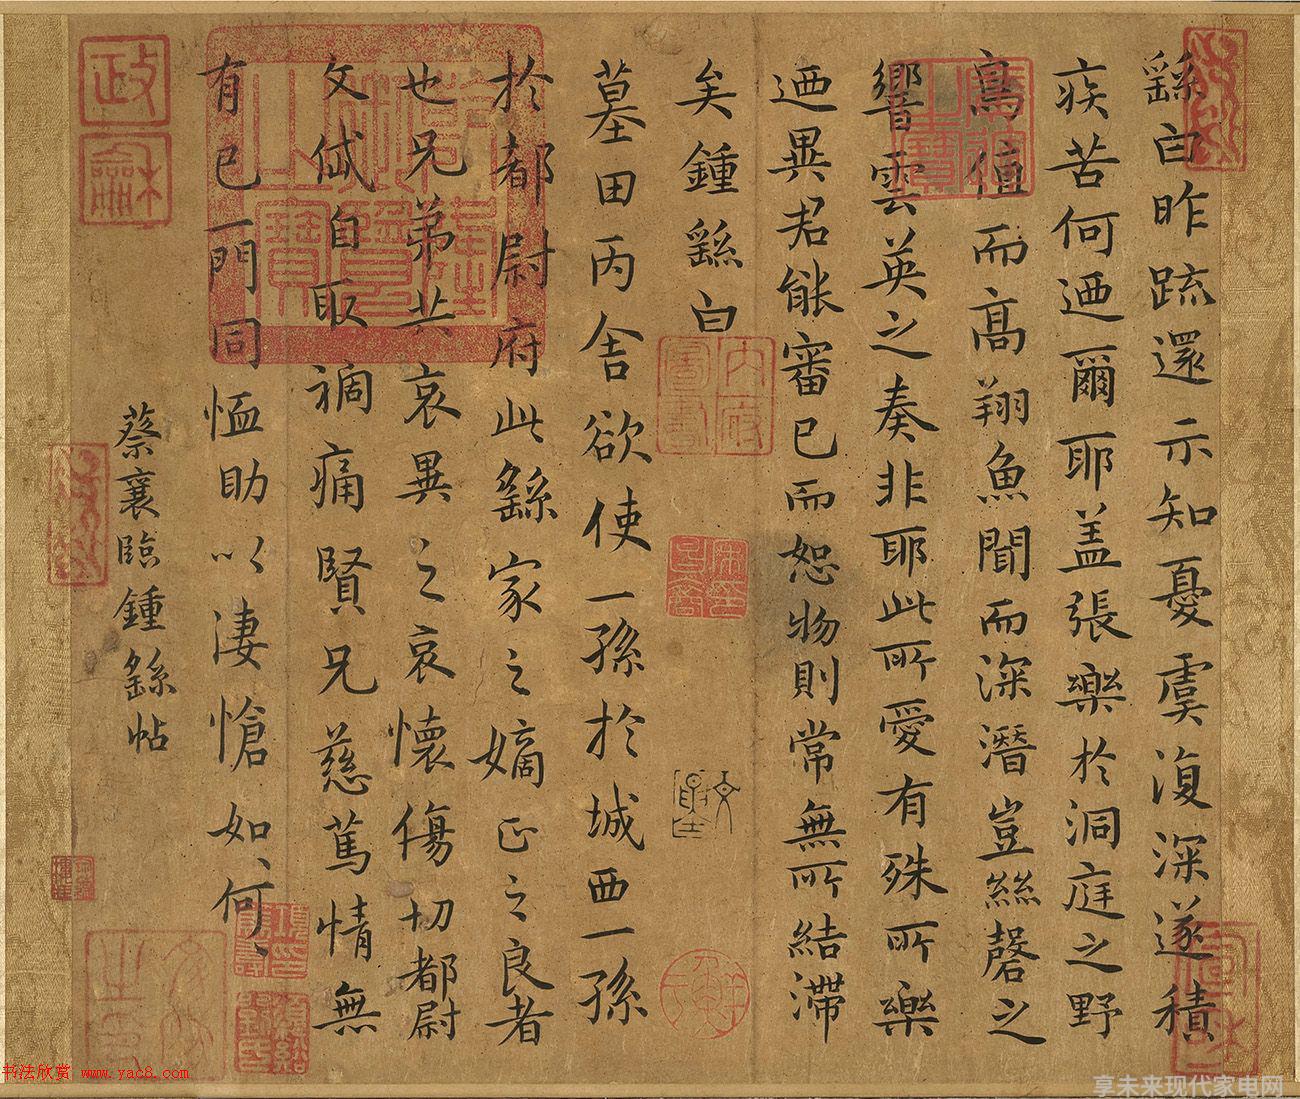 繇白昨疏還示知憂虞復深遂積
疾苦何迺爾耶蓋張樂於洞庭之野
鳥值而高翔魚聞而深潛豈絲磬之
響雲英之奏非耶此所愛有殊所樂
迺異君能審己而恕物則常無所結滯
矣鍾繇白
墓田丙舍欲使一孫於城西一孫
於都尉府此繇家之嫡正之良者
也兄弟共哀異之哀懷傷切都尉
文岱自取禍痛賢兄慈篤情無
有已一門同恤助以淒愴如、何、
蔡襄臨鍾繇帖
政
龢
內府圖書
书法欣赏 www.yac8.com
享未来现代家电网